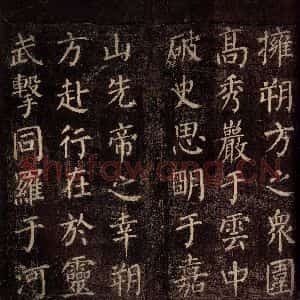 擁朔方之衆圍
高秀巖于雲中
破史思明于嘉
山先帝之幸朔
方赴行在於靈
武擊同羅于河